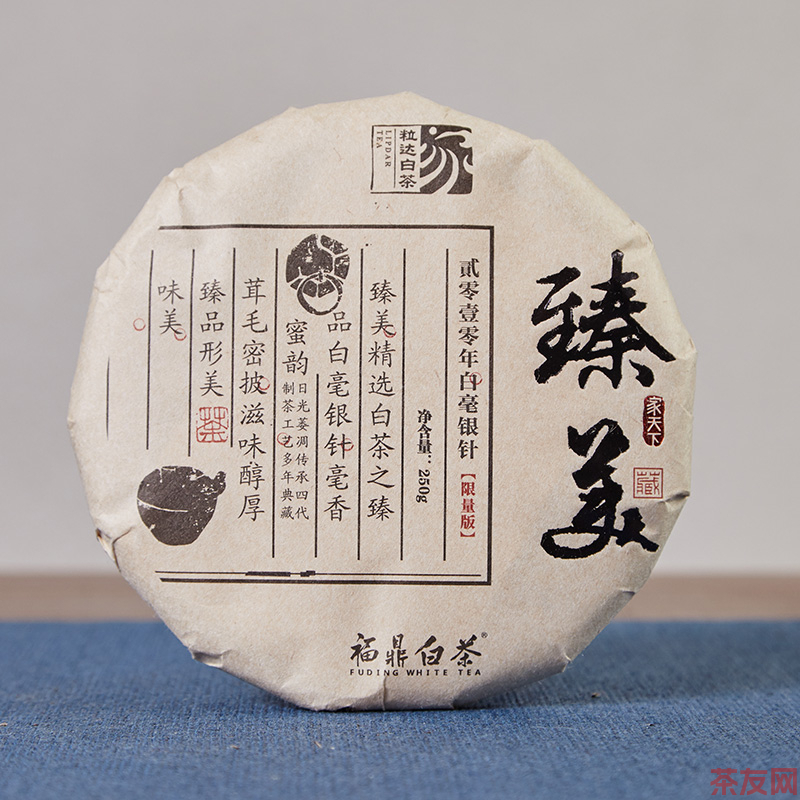 粒达白茶
LIPDAR
TEA
臻美
家天下
藏
贰零壹零年白毫银针【限量版】
净含量：250g
臻美精选白茶之臻
品白毫银针毫香
蜜韵
日光萎凋传承四代
制茶工艺多年典藏
茸毛密披滋味醇厚
臻品形美
茶
味美
福鼎白茶®
FUDING WHITE TEA
茶友网